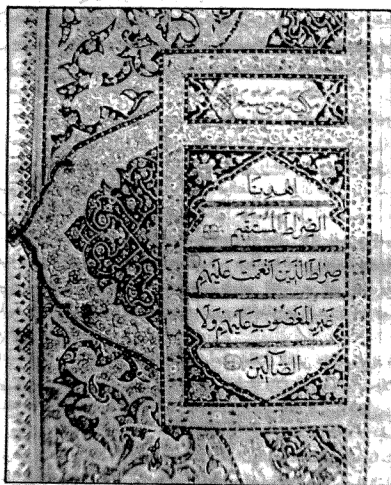 اهدنا
الصراط المستقيم
صراط الذين انعمت عليهم
غير المغضوب عليهم ولا
الضالين